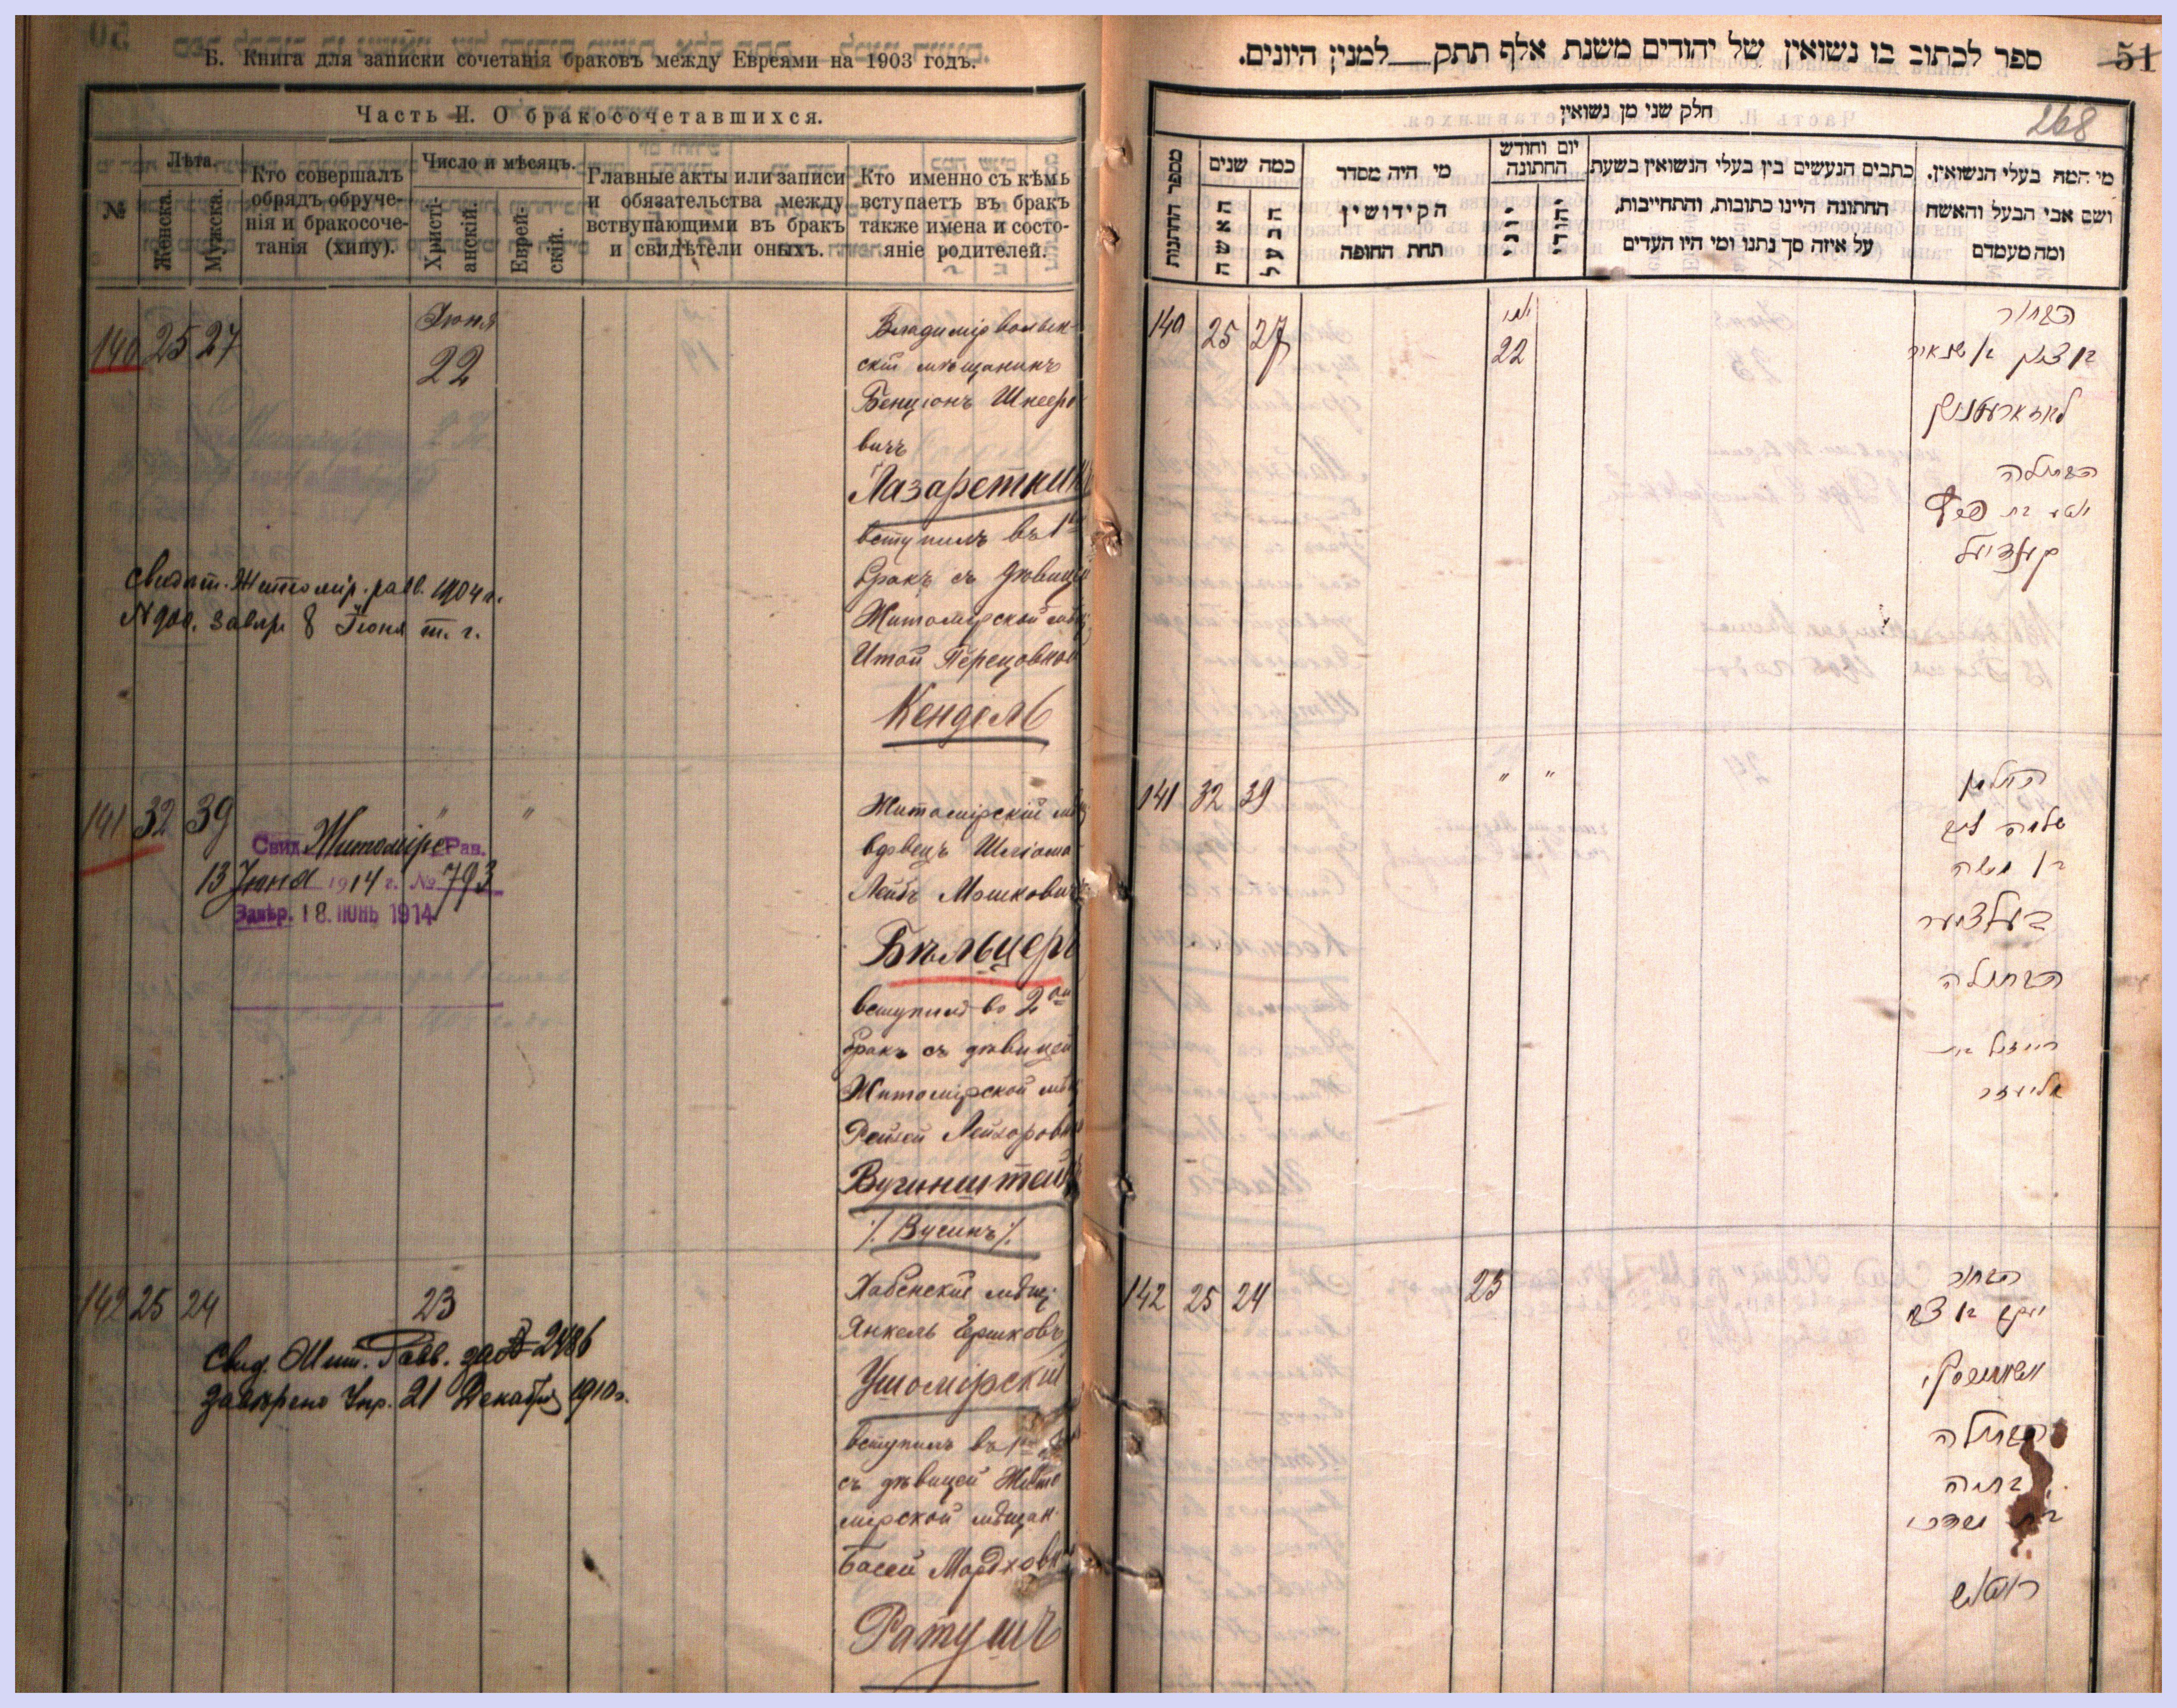 Б. Книга для записки сочетанія браковъ между Евреями на 1903 годъ.
Часть II. О бракосочетавшихся.
№
Лѣта.
Женска.
Мужска.
Кто совершалъ
обрядъ обруче-
нія и бракосоче-
танія (хипу).
Число и мѣсяцъ.
Христі-
анскій.
Еврей-
скій.
Главные акты или записи
и обязательства между
вступающими въ бракъ
и свидѣтели оныхъ.
Кто именно съ кѣмъ
вступаетъ въ бракъ
также имена и состо-
яніе родителей.
140 25 27
Іюня
22
Владимірволын-
скій мѣщанинъ
Бенціонъ Шнееро
вичъ
Лазареткинъ
вступилъ въ 1
бракъ съ дѣвицей
Житомірской мѣщ
Итой Перецовной
Кендель
Свидѣт. Житомір. равв. 1904 г.
N 900. завѣр 8 Іюня т. г.
141 32 39 " "
Свид. Житомірс Рав.
13 Іюня 1914 г. № 793
Завѣр. 18. ІЮНЬ 1914
Житомірскій мѣщ
вдовецъ Шліома
Лейбъ Мошковичъ
Бѣльцеръ
вступилъ во 2ой
бракъ съ дѣвицей
Житомірской мѣщ
Рейзей Лейзоровной
Вугинштейнъ
/. Вусинъ /.
142 25 24
23
Свид. Жит. Равв. за № 2486
завѣрено Упр. 21 Декабря 1910 г.
Хабенскій мѣщ.
Янкель Гершковъ
Ушомірскій
вступилъ въ 1
съ дѣвицей Жито
мірской мѣщан
Басей Мордховн
Ратушъ
ספר לכתוב בו נשואין של יהודים משנת אלף תתק למנין היונים.
51
268
חלק שני מן נשואין
מספר הדתנות
כמה שנים
האשה
הבעל
מי היה מסדר
הקידושין
תחת החופה
יום וחודש
החתונה
יוני
יהודי
כתבים הנעשים בין בעלי הנשואין בשעת
החתונה היינו כתובות, והתחייבות,
על איזה סך נתנו ומי היו העדים
מי המה בעלי הנשואין.
ושם אבי הבעל והאשה
ומה מעמדם
140 25 27
יוני
22
הבחור
בן ציון בן שניאור
לאזארעטקין
הבתולה
יטא בת פרץ
קענדיעל
141 32 39 " "
האלמן
שלמה ליב
בן משה
בעלצער
הבתולה
רייזיל בת
אליעזר
142 25 24
23
הבחור
יעקב בן צבי
אושאמירסקי
הבתולה
בתיה
בת מרדכי
ראטוש